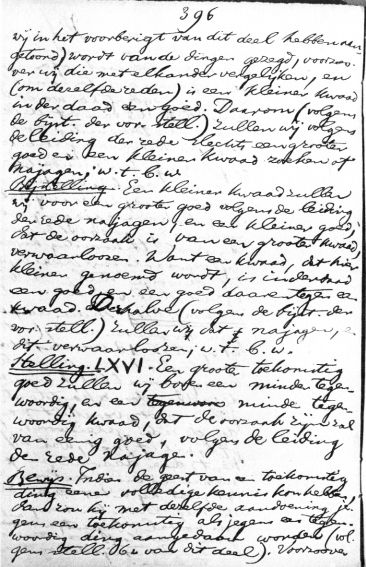 396
wij in het voorberigt van dit deel hebben aan
getoond) wordt van de dingen gezegd, voorzoo
ver wij die met elkander vergelijken, en
(om dezelfde reden) is een kleiner kwaad
inderdaad een goed. Daarom (volgens
de bijst. der vor. stell.) zullen wij volgens
de leiding der rede slechts een grooter
goed en een kleiner kwaad zoeken of
najagen; w. t. b. w.
Bijstelling. Een kleiner kwaad zullen
wij voor een grooter goed volgens de leiding
der rede najagen, en een kleiner goed,
dat de oorzaak is van een grooter kwaad,
verwaarloozen. Want een kwaad, dat hier
kleiner genoemd wordt, is inderdaad
een goed, en een goed daarentegen een
kwaad. Derhalve (volgens de bijst. der
vor. stell.) zullen wij dat najagen, en
dit verwaarloozen; w. t. b. w.
Stelling LXVI. Een grooter toekomstig
goed zullen wij boven een minder tegen-
woordig, en een minder tegen-
woordig kwaad, dat de oorzaak zijn zal
van eenig goed, volgens de leiding
der rede najagen.
Bewijs. Indien de geest van een toekomstig
ding eene volledige kennis kon hebben,
dan zou hij met dezelfde aandoening je-
gens een toekomstig als jegens een tegen-
woordig ding aangedaan worden (vol-
gens stell. 62 van dit deel). Voorzoover